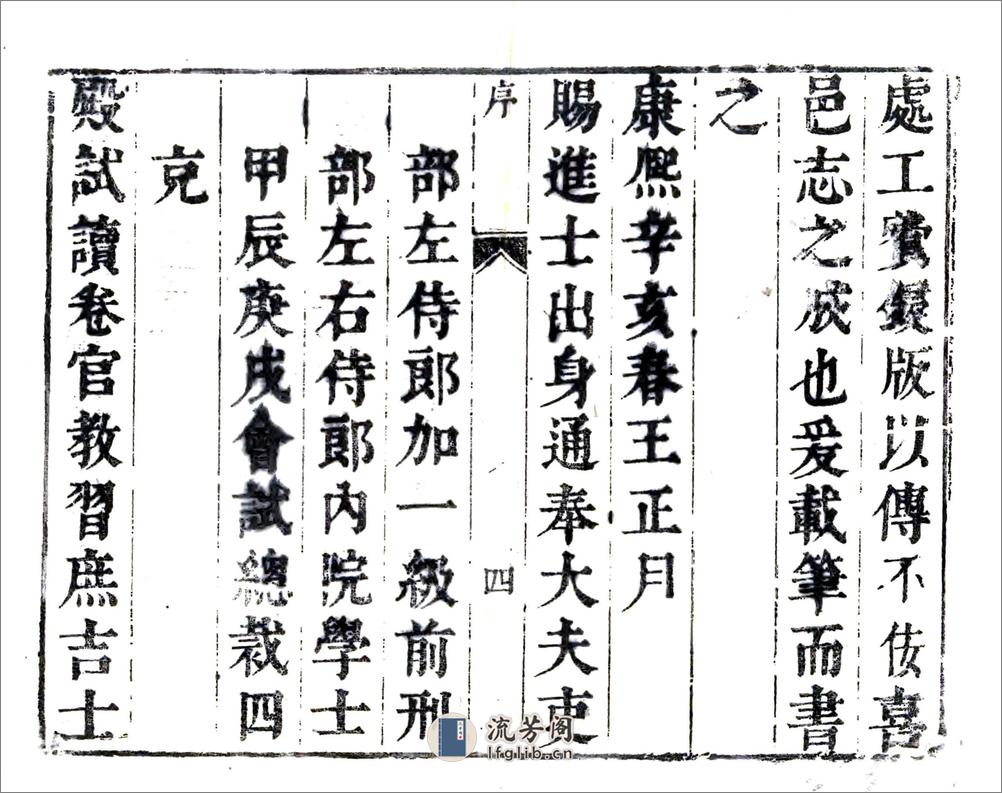 處工費鋟版以傳不佞喜
邑志之成也爰載筆而書
之
康熙辛亥春王正月
賜進士出身通奉大夫吏
序 四
部左侍郎加一級前刑
部左右侍郎內院學士
甲辰庚戌會試總裁四
充
殿試讀卷官教習庶吉士
流芳阁
lfglib.cn